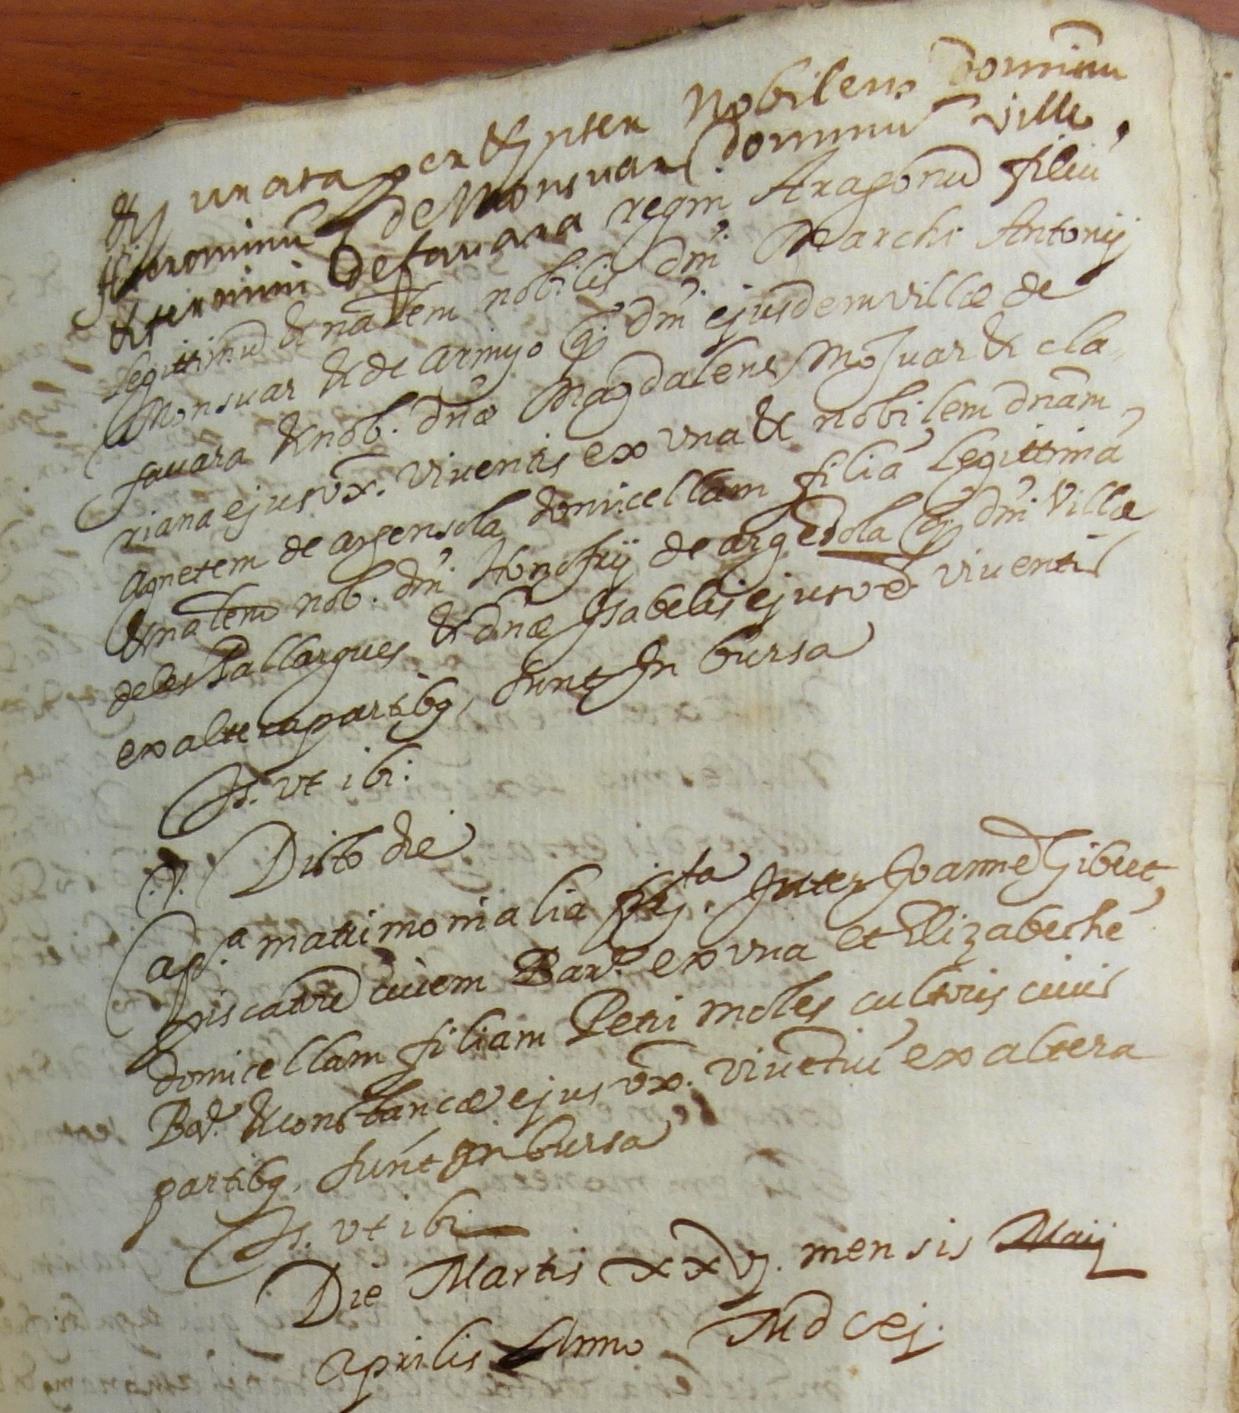 & jurata per & inter Nobilem dominum
Hieronimũ de Monsuar dominũ ville
& termini de favara regni Aragonũ filiũ
legittimũ & natȃlem nobilis dm̃i Marchi Antonij
Monsuar & de arinyo qº dm̃i ejusdem villæ de
favara & nob. dnæ Magdalene Mõsuar & cla-
riana ejus vx̃. viventis ex vna & nobilem dnãm
Agnetem de argensola domicellam filiã legittimã
& natȃlem nob. dm̃i Honofrij de argẽsola qº dm̃i Villæ
de les Pallargues & dnæ Isabelis ejus vx̃. viventis
ex altera partibꝫ, sunt In bursa
Ts. vt ibi:
Dicto die
Cap.ª matrimonialia fir.ta Inter Joannẽ Gibert
piscatorẽ civem Barᵉ. ex vna et Elizabethẽ
domicellam filiam Petri moles cultoris civis
Barᵉ. & constancæ ejus vx̃. viventiũ ex altera
partibꝫ, sunt In bursa
Ts. vt ibi
Die Martis xxvj. mensis Maij
aprilis Anno MDcej.